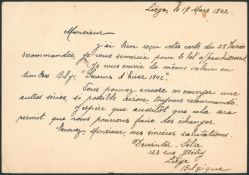 Liège, le 17 Mars 1942.
Monsieur
J'ai bien reçu votre carte du 28 Février
recommandée, je vous remercie pour le bel affranchissement
Je vous envoie la même valeur en
timbres Belge "Secours d'hiver 1942".
Vous pouvez encore m'envoyer une
autres séries, si possible sinon toujours recommandé.
J'espère que aussitôt que cela sera
permit que nous pourrons faire des échanges.
Recevez Monsieur, mes sincères salutations.
Félix
123 rue
Liège
Belgique